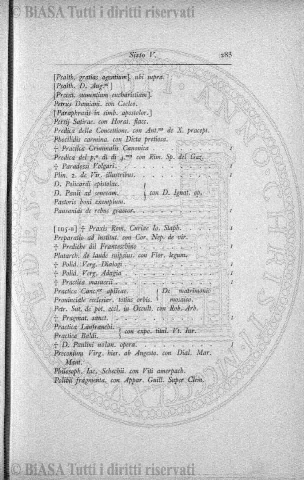 © BiASA Tutti i diritti riservati
Sixto V. 285
[Psalth. gratias agentium], ubi supra.
[Psalth. D. Aug.ni]
[Precat. sumentium eucharistiam].
Petrus Damiani. con Coelee.
[Paraphrasis in simb. apostolor.]
Persij Satirae. con Horat. flacc.
Predica della Concettione. con Ant.us de X. praecept. 1
Phocilidis carmina. con Dicta pretiosa. 1
† Practica Criminalis Canonica 1
Predica del p.º di di 4.ma con Rim. Sp. del Guz. 1
† Paradossi Volgari. 1
Plin. 2. de Vir. illustribus. 1
D. Policardi epistolae.
D. Pauli ad senecam. con D. Ignat. ep. 1
Pastoris boni exemplum. 1
Pausanias de rebus graecor. 1
† Praxis Rom. Curiae Io. Staph. 1
Preparatio ad institut. con Cor. Nep. de vir. 1
† Prediche del Franceschino 1
Plutarch. de laude suipsius. con Flor. legum. 1
† Polid. Verg. Dialogi 1
† Polid. Verg. Adagia 1
† Practica maracci. 1
Practica Canc.ae aplicae. De matrimonio
Provinciale ecclesiar. totius orbis. mosaico. 1
Petr. Sut. de pot. eccl. in Occult. con Rob. Arb. 1
† Pragmat. sanct. 1
Practica Laufranchi. con expo. titul. Vt. Iur. 1
Practica Baldi.
† D. Paulini nolan. opera. 1
Precantium Virg. hier. ab Angesto. con Dial. Mar. Mant. 1
Philosoph. Iac. Schechii. con Viti amerpach. 1
Polibij fragmenta. con Appar. Guill. Super Clem. 1
© BiASA Tutti i diritti riservati